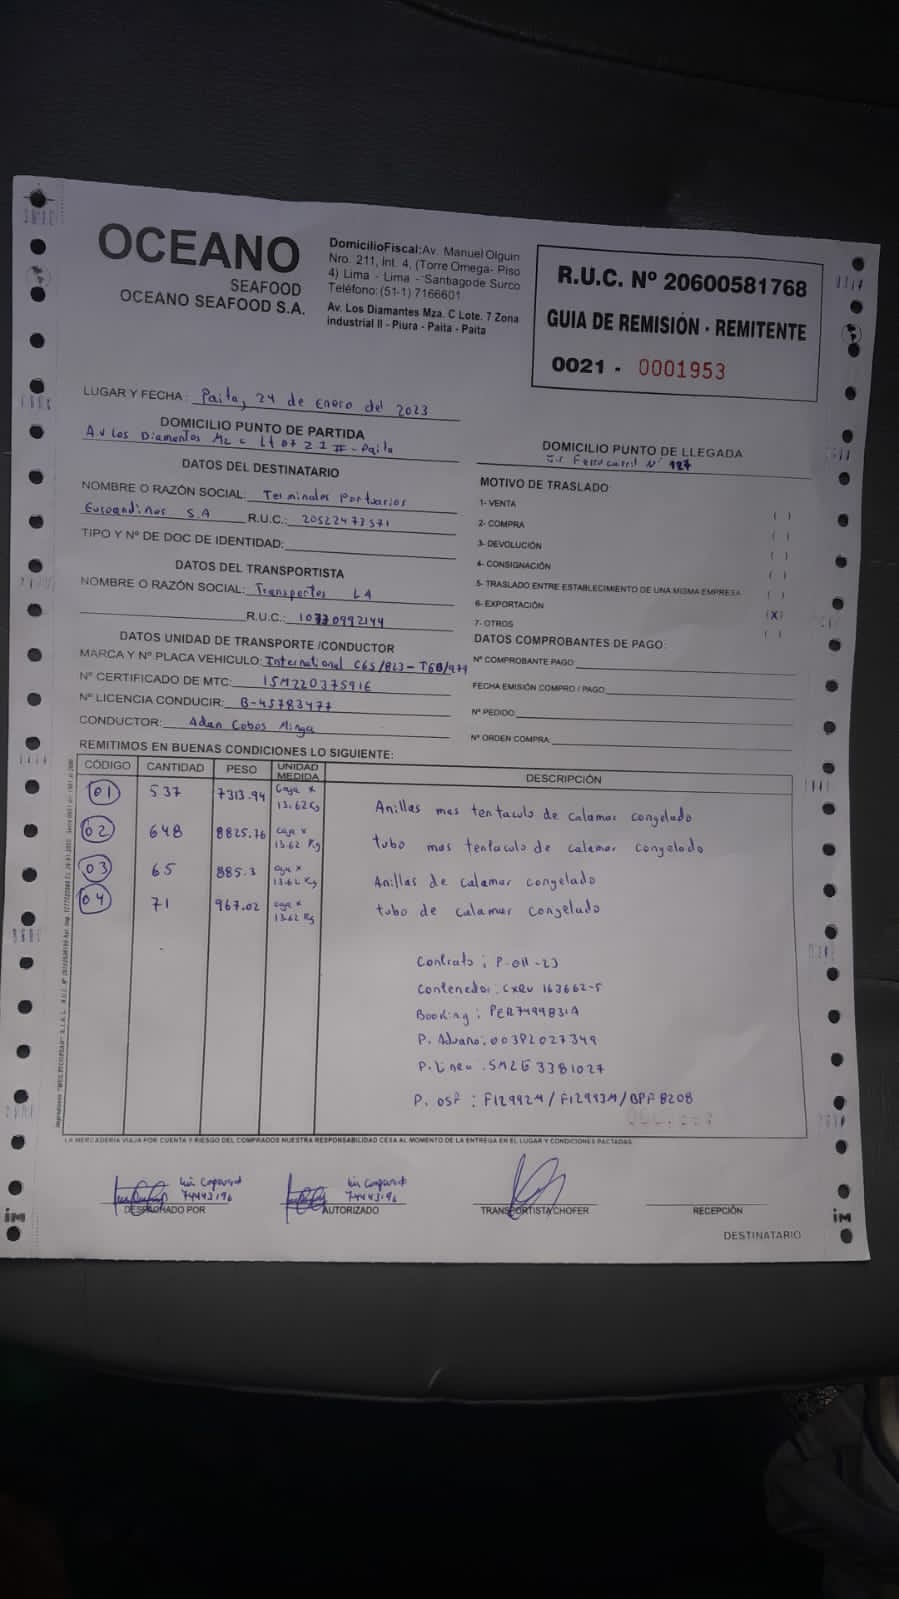 OCEANO
SEAFOOD
OCEANO SEAFOOD S.A.
DomicilioFiscal: Av. Manuel Olguin
Nro. 211, Int. 4, (Torre Omega- Piso
4) Lima - Lima - Santiago de Surco
Teléfono: (51-1) 7166601
Av. Los Diamantes Mza. C Lote. 7 Zona
industrial II - Piura - Paita - Paita
R.U.C. Nº 20600581768
GUIA DE REMISIÓN - REMITENTE
0021 - 0001953
LUGAR Y FECHA: Paita, 24 de Enero del 2023
DOMICILIO PUNTO DE PARTIDA
A.v Los Diamantes Mz c Lt 07 Z I II - Paita
DOMICILIO PUNTO DE LLEGADA
Ferrocarril Nº 127
DATOS DEL DESTINATARIO
NOMBRE O RAZÓN SOCIAL: Terminales Portuarios
Euroandinos S.A R.U.C.: 20522473571
TIPO Y Nº DE DOC DE IDENTIDAD:
DATOS DEL TRANSPORTISTA
NOMBRE O RAZÓN SOCIAL: Transportes LA
R.U.C.: 10770992144
DATOS UNIDAD DE TRANSPORTE /CONDUCTOR
MARCA Y Nº PLACA VEHICULO: International C6S/823-T6B/979
Nº CERTIFICADO DE MTC: 15M22037591E
Nº LICENCIA CONDUCIR: B-45783477
CONDUCTOR: Adan Cobos Minga
MOTIVO DE TRASLADO:
1- VENTA ( )
2- COMPRA ( )
3- DEVOLUCIÓN ( )
4- CONSIGNACIÓN ( )
5- TRASLADO ENTRE ESTABLECIMIENTO DE UNA MISMA EMPRESA ( )
6- EXPORTACIÓN (X)
7- OTROS ( )
DATOS COMPROBANTES DE PAGO:
Nº COMPROBANTE PAGO
FECHA EMISIÓN COMPRO / PAGO
Nº PEDIDO:
Nº ORDEN COMPRA:
REMITIMOS EN BUENAS CONDICIONES LO SIGUIENTE:
CÓDIGO CANTIDAD PESO UNIDAD MEDIDA DESCRIPCIÓN
01 537 7313.94 Caja x 13.62 Kg Anillas mas tentaculo de calamar congelado
02 648 8825.76 caja x 13.62 Kg tubo mas tentaculo de calamar congelado
03 65 885.3 caja x 13.62 Kg Anillas de calamar congelado
04 71 967.02 caja x 13.62 Kg tubo de calamar congelado
Contrato: P-011-23
Contenedor: CXRU 163662-5
Booking: PER7499831A
P. Aduana: 003P2027349
P. Linea: SM2G3381027
P. OSP: F12992M/F12993M/BPF8208
LA MERCADERIA VIAJA POR CUENTA Y RIESGO DEL COMPRADOS NUESTRA RESPONSABILIDAD CESA AL MOMENTO DE LA ENTREGA EN EL LUGAR Y CONDICIONES PACTADAS
74443196
74443196
DESPACHADO POR
AUTORIZADO
TRANSPORTISTA/CHOFER
RECEPCIÓN
DESTINATARIO
iM
iM